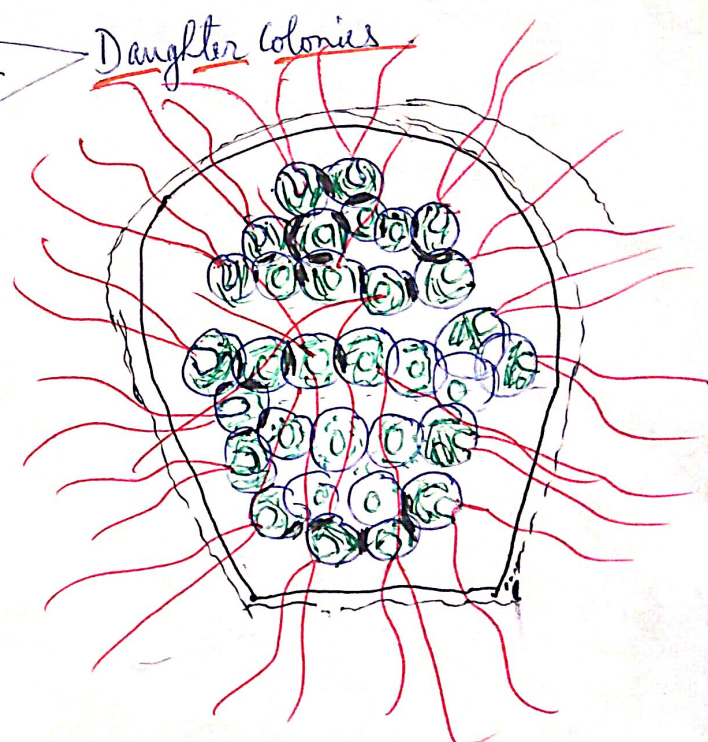 Daughter Colonies